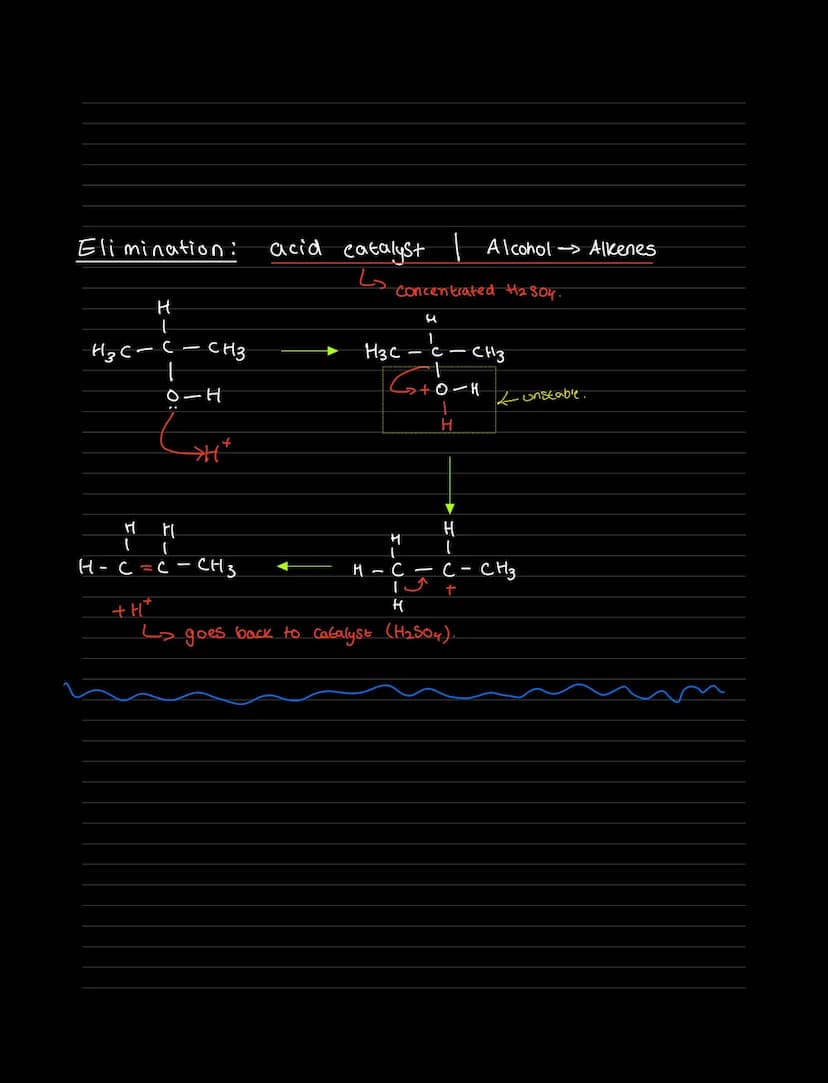 Elimination: acid catalyst | Alcohol → Alkenes
↳ concentrated H2SO4.
H
H
H3C - C - CH3
H3C - C - CH3
O - H
+ O - H
← unstable.
H+
H
H H
H H
H - C = C - CH3
H - C - C - CH3
+
H
+ H+
↳ goes back to catalyst (H2SO4).